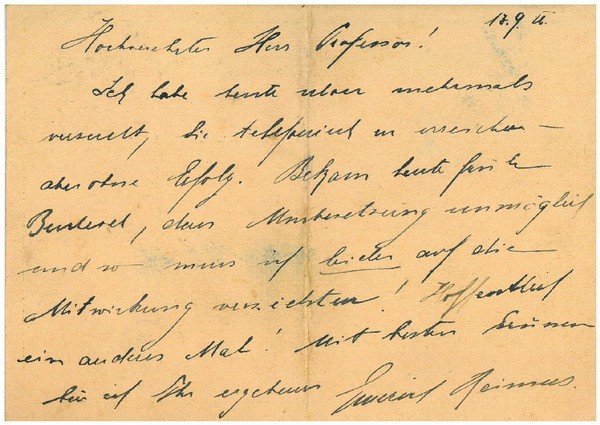 17.9.
Hochverehrter Herr Professor!
Ich habe heute mehrmals
versucht, Sie telefonisch zu erreichen –
aber ohne Erfolg. Bekam heute früh
Bescheid, dass Umbesetzung unmöglich
und so muss ich leider auf die
Mitwirkung verzichten! Hoffentlich
ein anderes Mal! Mit besten Grüssen
bin ich Ihr ergebener